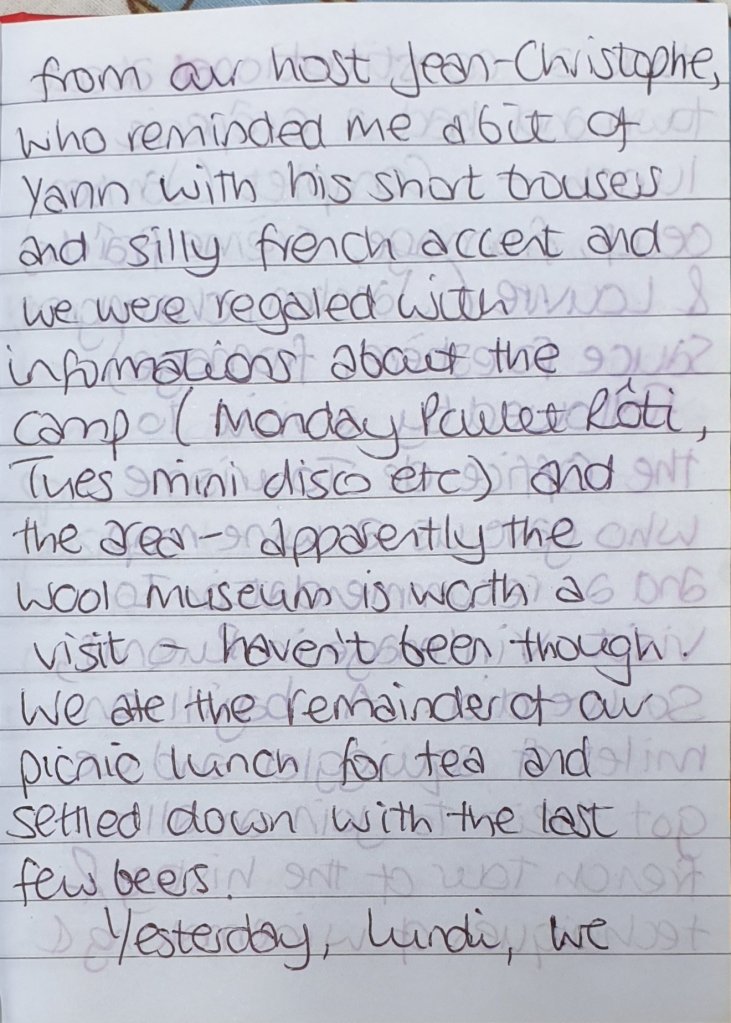 from our host Jean-Christophe,
who reminded me a bit of
Yann with his short trousers
and silly french accent and
we were regaled with
informations about the
camp (Monday Poulet Rôti,
Tues mini disco etc) and
the area - apparently the
wool museum is worth a
visit - haven't been though.
We ate the remainder of our
picnic lunch for tea and
settled down with the last
few beers.
Yesterday, lundi, we